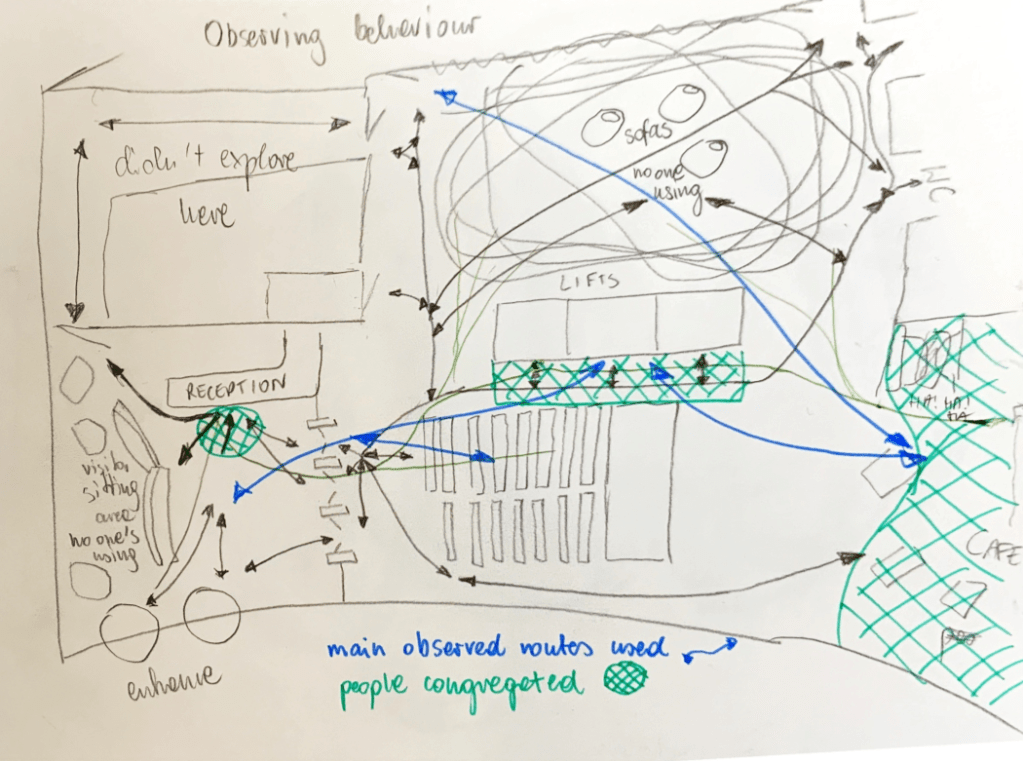 Observing behaviour
didn't explore
here
sofas
no one
using
WC
LIFTS
RECEPTION
HA! HA!
HA
visitor
sitting
area
no one's
using
CAFE
entrance
main observed routes used
people congregeted